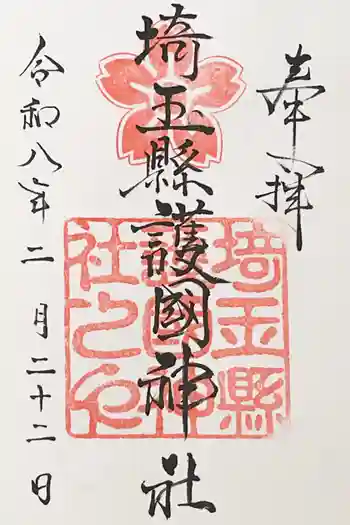 奉拝
埼玉縣護國神社
令和八年二月二十二日
埼玉縣
護國神
社之印